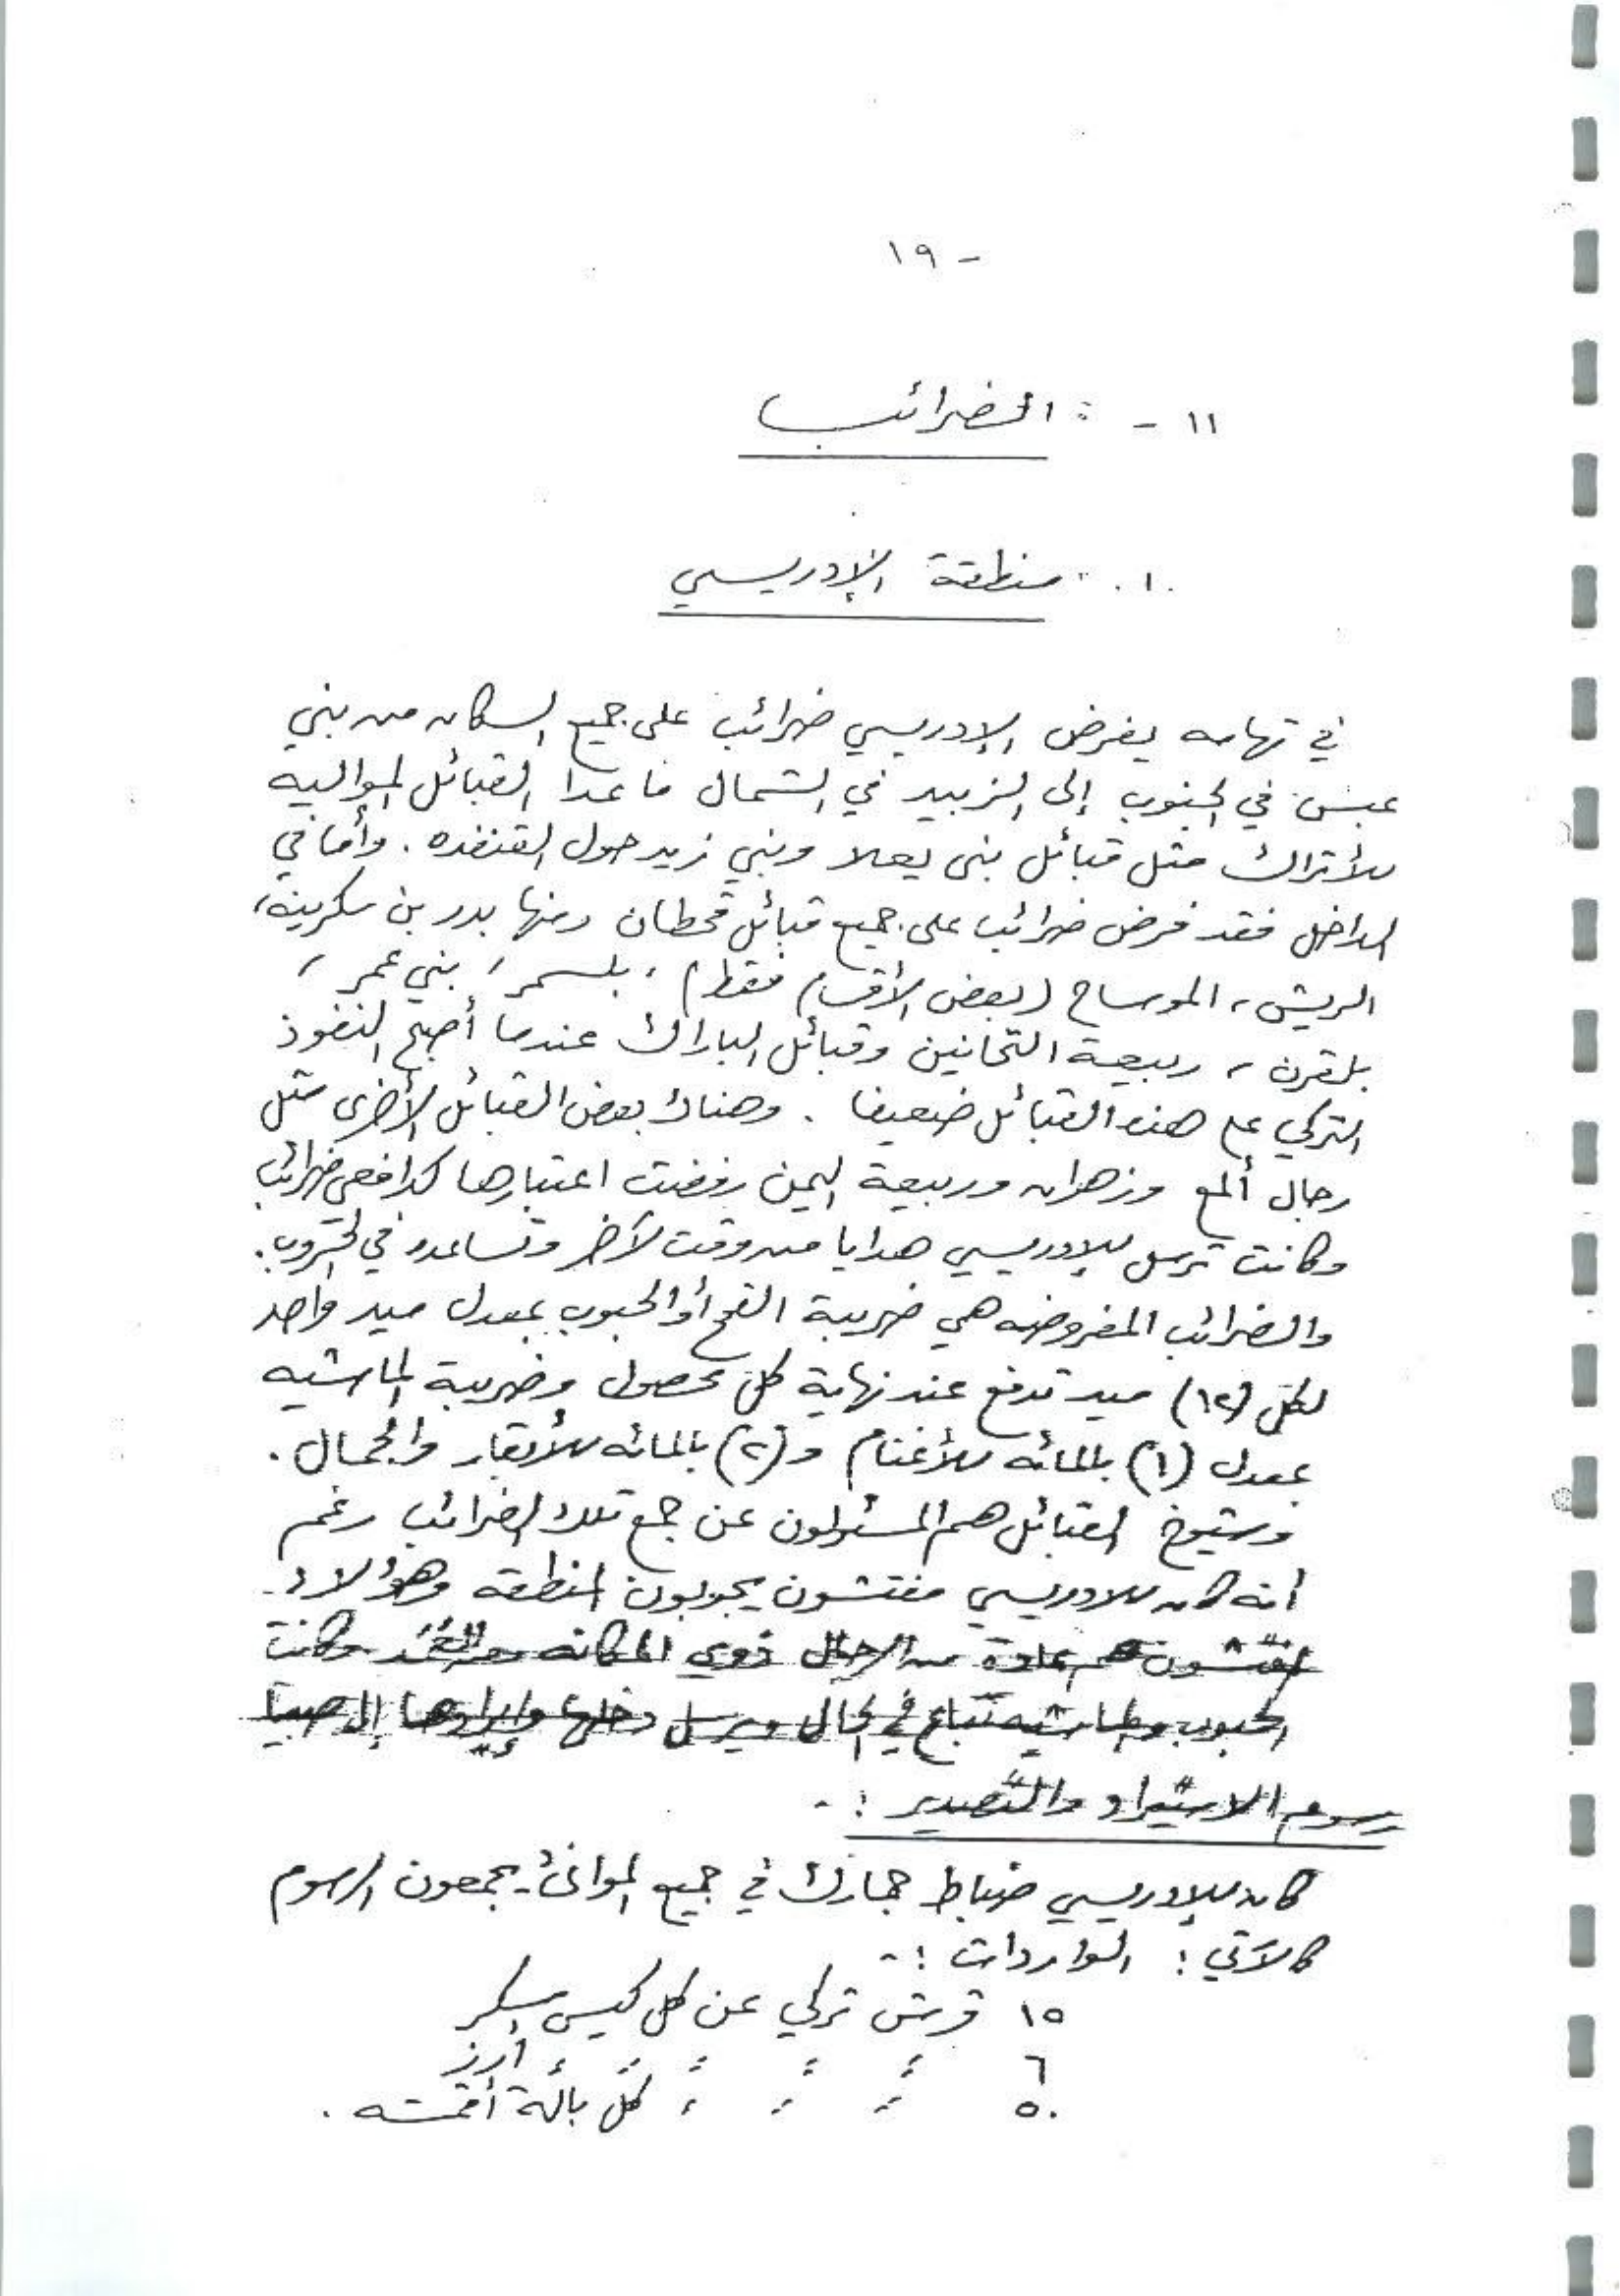 ١٩ -
١١ - : الضرائب
١. منطقة الإدريسي
في تهامه يفرض الإدريسي ضرائب على جميع السكان من بني
عبس في الجنوب إلى الزبيد في الشمال ما عدا القبائل الموالية
للأتراك مثل قبائل بنى يعلا وبني زيد حول القنفذه . وأما في
الداخل فقد فرض ضرائب على جميع قبائل قحطان ومنها بدر بن سكرينة،
الريش ، الموساح (بعض الأقسام فقط) ، بلسمر ، بني عمر ،
بلقرن ، ربيعة التحانين وقبائل الباراك عندما أصبح النفوذ
التركي على هذه القبائل ضعيفا . وهناك بعض القبائل الأخرى مثل
رجال ألمع وزهران وربيعة اليمن رفضت اعتبارها كدافعي ضرائب
وكانت ترسل للإدريسي هدايا من وقت لآخر وتساعده في الحروب .
والضرائب المفروضه هي ضريبة القمح أو الحبوب بمعدل ميد واحد
لكل (١٢) ميد تدفع عند نهاية كل محصول وضريبة الماشيه
بمعدل (١) بالمائه للأغنام و (٢) بالمائه للأبقار والجمال .
وشيوخ القبائل هم المسئولون عن جمع تلك الضرائب رغم
أنه كان للادريسي مفتشون يجوبون المنطقه وهؤلاء
المفتشون هم عادة من الرجال ذوي المكانه وكانت
الحبوب والماشيه تباع في الحال ويرسل دخلها وإيرادها إلى صبيا
رسوم الاستيراد والتصدير : -
كان للإدريسي ضباط جمارك في جميع الموانئ يجمعون الرسوم
كالآتي : الواردات : -
١٥ قرش تركي عن كل كيس سكر
٦ " " " " " أرز
٥٠ " " " كل بالة أقمشه .